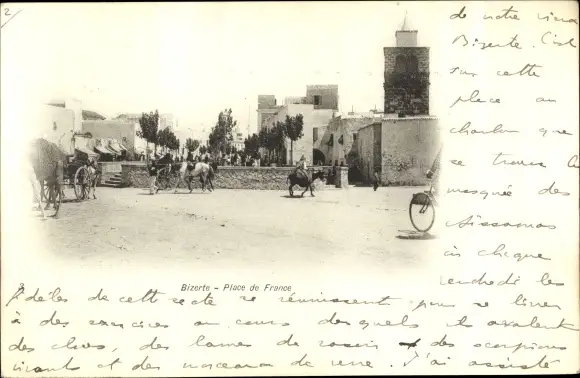 2
de notre vieux
Bizerte. C'est
sur cette
place au
charbon que
se trouve la
mosquée des
Aissaouas
où chaque
vendredi les
fidèles de cette secte se réunissent pour se livrer
à des exercices au cours desquels ils avalent
des clous, des lames de rasoir des scorpions
vivants et des morceaux de verre. J'ai assisté
Bizerte - Place de France